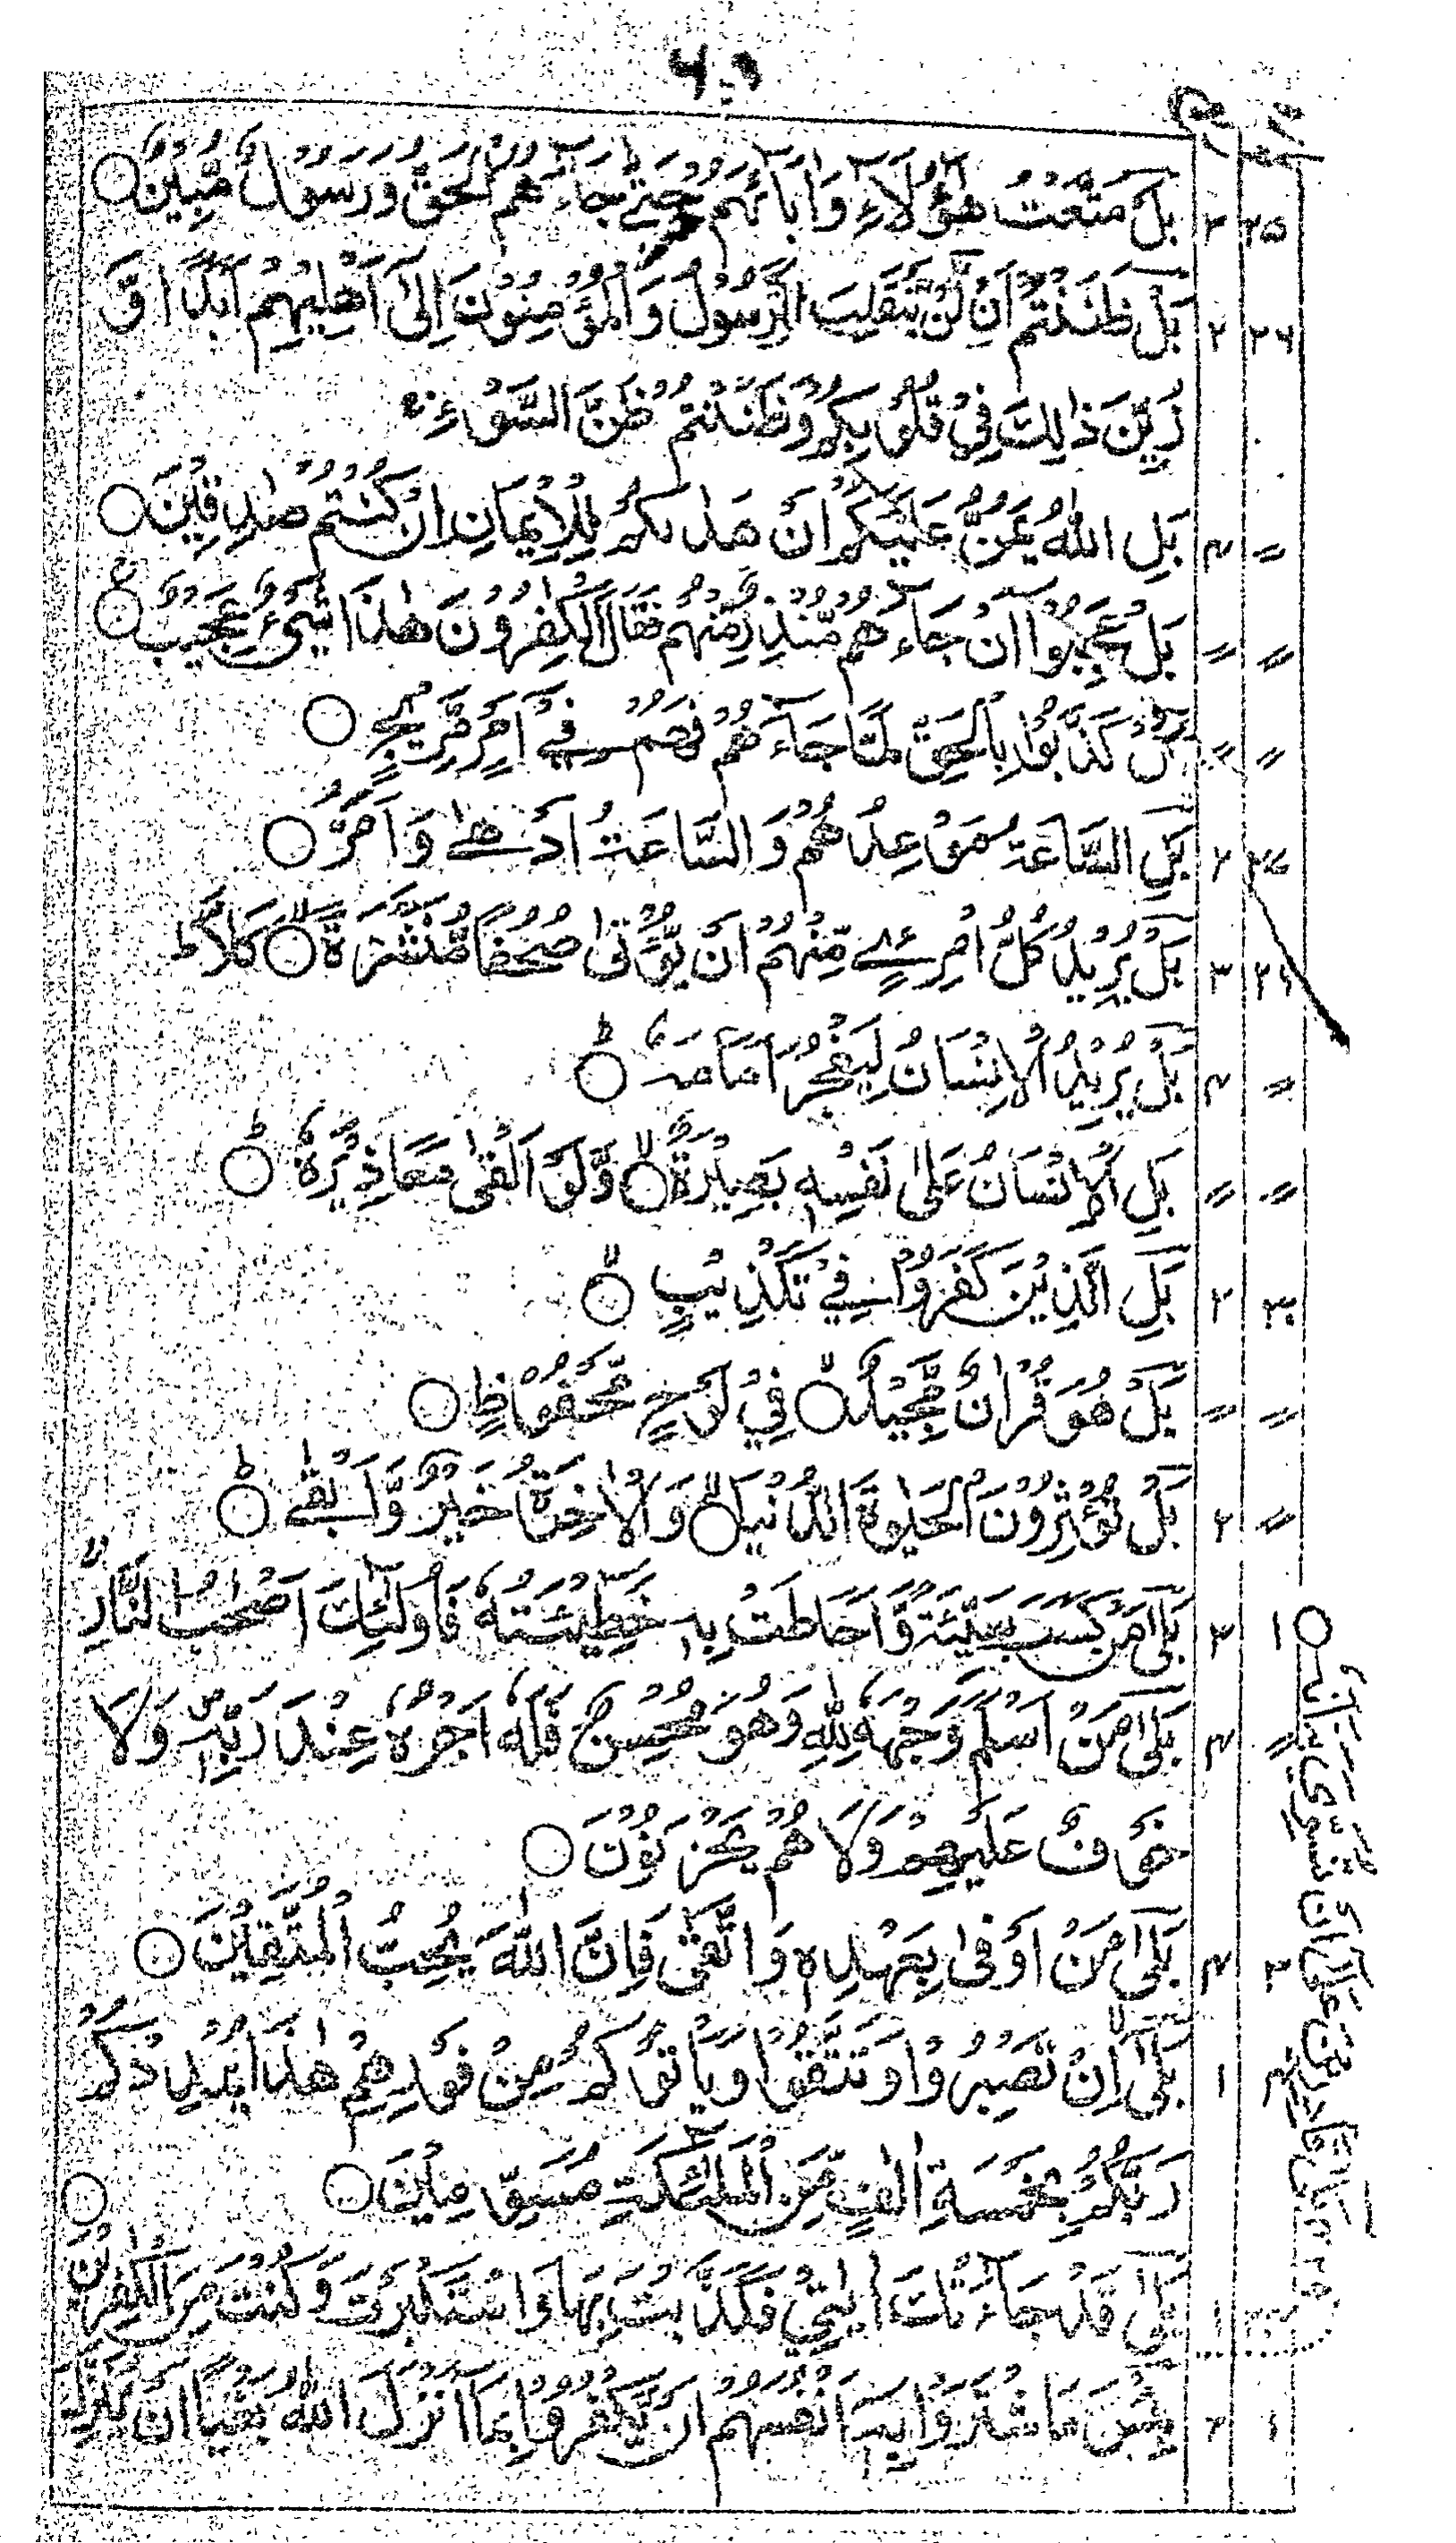 بَلْ مَتَّعْتُ هٰٓؤُلَآءِ وَاٰبَآئَهُمْ حَتّٰے جَآءَهُمُ الْحَقُّ وَرَسُوْلٌ مُّبِيْنٌ ۲ ۲۵
بَلْ ظَنَنْتُمْ اَنْ لَّنْ يَّنْقَلِبَ الرَّسُوْلُ وَالْمُؤْمِنُوْنَ اِلٰٓى اَهْلِيْهِمْ اَبَدًا وَّ ۲ ۲۶
زُيِّنَ ذٰلِكَ فِيْ قُلُوْبِكُمْ وَظَنَنْتُمْ ظَنَّ السَّوْءِ
بَلِ اللّٰهُ يَمُنُّ عَلَيْكُمْ اَنْ هَدٰىكُمْ لِلْاِيْمَانِ اِنْ كُنْتُمْ صٰدِقِيْنَ ۴ //
بَلْ عَجِبُوْٓا اَنْ جَآءَهُمْ مُّنْذِرٌ مِّنْهُمْ فَقَالَ الْكٰفِرُوْنَ هٰذَا شَيْءٌ عَجِيْبٌ // //
بَلْ كَذَّبُوْا بِالْحَقِّ لَمَّا جَآءَهُمْ فَهُمْ فِيْٓ اَمْرٍ مَّرِيْجٍ // //
بَلِ السَّاعَةُ مَوْعِدُهُمْ وَالسَّاعَةُ اَدْهٰے وَاَمَرُّ ۲ ۲۷
بَلْ يُرِيْدُ كُلُّ امْرِئٍ مِّنْهُمْ اَنْ يُّؤْتٰى صُحُفًا مُّنَشَّرَةً كَلَّا ط ۳ ۲۹
بَلْ يُرِيْدُ الْاِنْسَانُ لِيَفْجُرَ اَمَامَهٗ ۴ //
بَلِ الْاِنْسَانُ عَلٰى نَفْسِهٖ بَصِيْرَةٌ وَّلَوْ اَلْقٰى مَعَاذِيْرَهٗ // //
بَلِ الَّذِيْنَ كَفَرُوْا فِيْ تَكْذِيْبٍ ۲ ۳۰
بَلْ هُوَ قُرْاٰنٌ مَّجِيْدٌ فِيْ لَوْحٍ مَّحْفُوْظٍ // //
بَلْ تُؤْثِرُوْنَ الْحَيٰوةَ الدُّنْيَا وَالْاٰخِرَةُ خَيْرٌ وَّاَبْقٰے ۲ //
بَلٰى مَنْ كَسَبَ سَيِّئَةً وَّاَحَاطَتْ بِهٖ خَطِيْٓئَتُهٗ فَاُولٰٓئِكَ اَصْحٰبُ النَّارِ ۳ ۱
بَلٰى مَنْ اَسْلَمَ وَجْهَهٗ لِلّٰهِ وَهُوَ مُحْسِنٌ فَلَهٗٓ اَجْرُهٗ عِنْدَ رَبِّهٖ وَلَا ۴ //
خَوْفٌ عَلَيْهِمْ وَلَا هُمْ يَحْزَنُوْنَ
بَلٰى مَنْ اَوْفٰى بِعَهْدِهٖ وَاتَّقٰى فَاِنَّ اللّٰهَ يُحِبُّ الْمُتَّقِيْنَ ۴ ۳
بَلٰٓى اِنْ تَصْبِرُوْا وَتَتَّقُوْا وَيَاْتُوْكُمْ مِّنْ فَوْرِهِمْ هٰذَا يُمْدِدْكُمْ ۱ ۴
رَبُّكُمْ بِخَمْسَةِ اٰلٰفٍ مِّنَ الْمَلٰٓئِكَةِ مُسَوِّمِيْنَ
بَلٰى قَدْ جَآءَتْكَ اٰيٰتِيْ فَكَذَّبْتَ بِهَا وَاسْتَكْبَرْتَ وَكُنْتَ مِنَ الْكٰفِرِيْنَ ۱
بِئْسَ مَا اشْتَرَوْا بِهٖٓ اَنْفُسَهُمْ اَنْ يَّكْفُرُوْا بِمَآ اَنْزَلَ اللّٰهُ بَغْيًا اَنْ يُّنَزِّلَ ۳ ۱